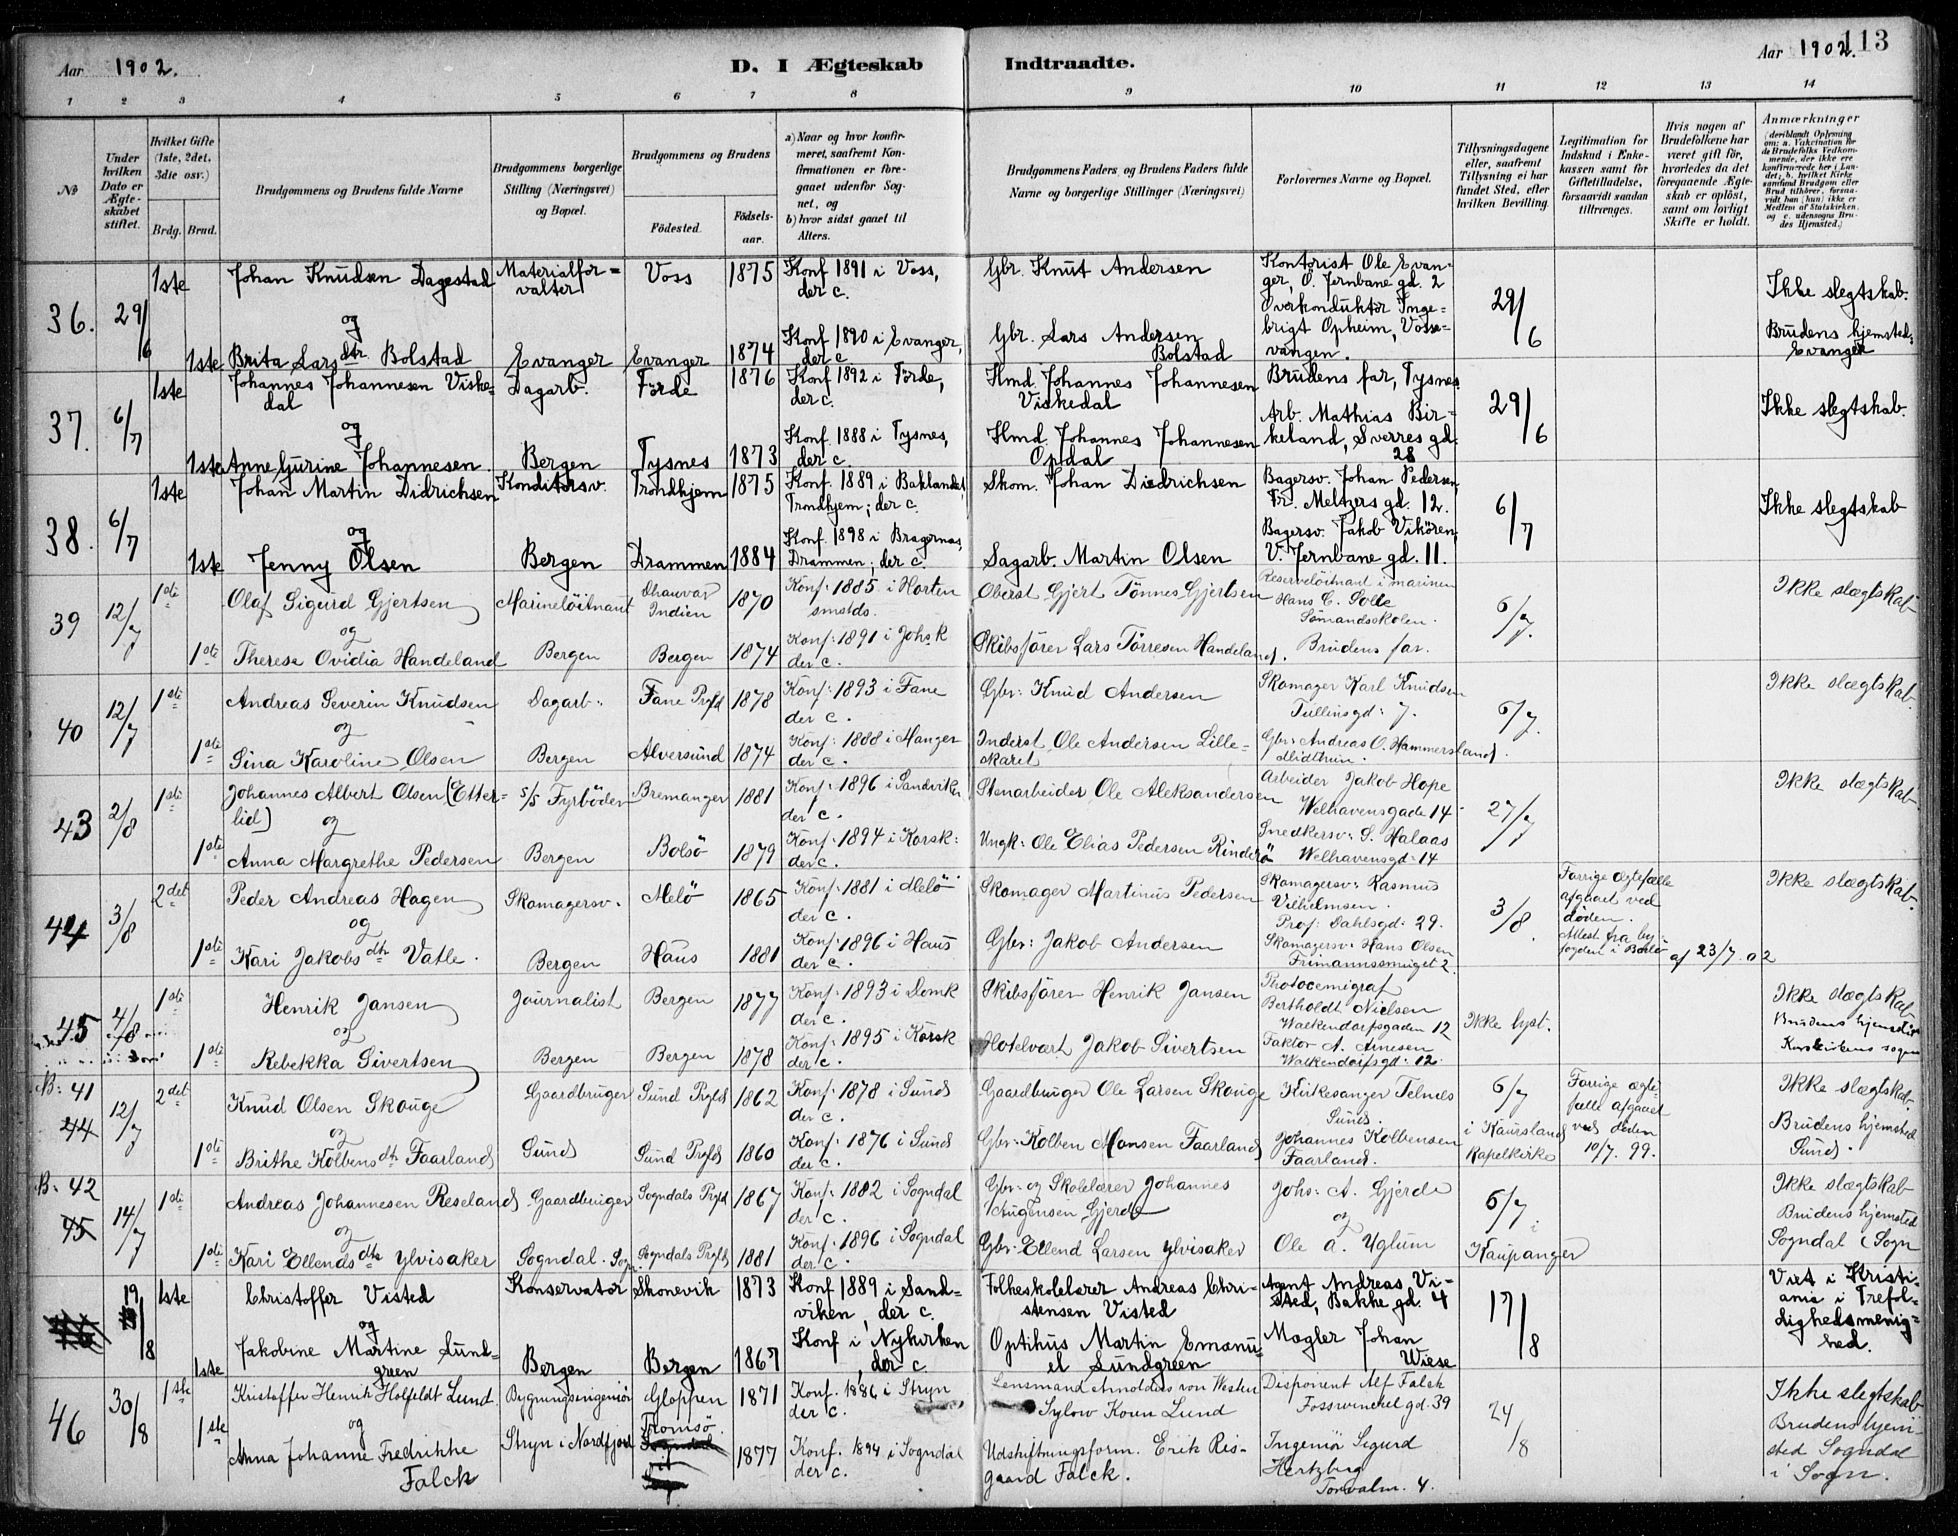 Aar 1902.
D. I Ægteskab Indtraadte.
Aar 1902.
113
1 2 3 4 5 6 7 8 9 10 11 12 13 14
No
Under hvilken Dato er Ægteskabet stiftet.
Hvilket Gifte (1ste, 2det, 3die osv.)
Brdg. Brud.
Brudgommens og Brudens fulde Navne
Brudgommens borgerlige Stilling (Næringsvei) og Bopæl.
Brudgommens og Brudens
Fødested. Fødsels-aar.
a) Naar og hvor konfirmeret, saafremt Konfirmationen er foregaaet udenfor Sognet, og
b) hvor sidst gaaet til Alters.
Brudgommens Faders og Brudens Faders fulde Navne og borgerlige Stillinger (Næringsvei)
Forlovernes Navne og Bopæl.
Tillysningsdagene eller, saafremt Tillysning ei har fundet Sted, efter hvilken Bevilling.
Legitimation for Indskud i Enkekassen samt for Giftetilladelse, forsaavidt saadan tiltrænges.
Hvis nogen af Brudefolkene har været gift før, hvorledes da det foregaaende Ægteskab er opløst, samt om lovligt Skifte er holdt.
Anmærkninger
(deriblandt Oplysning om: a. Vaccination for de Brudefolks Vedkommende, der ikke ere konfirmerede her i Landet; b. hvilket Kirkesamfund Brudgom eller Brud tilhører, forsaavidt han (hun) ikke er Medlem af Statskirken, og c. udensogns Brudes Hjemsted.)
36. 29/6 1ste Johan Knudsen Dagestad Materialforvalter Voss 1875 Konf 1891 i Voss, der c. Gbr. Knut Andersen Kontorist Ole Evanger, Ö. Jernbane gd. 2 29/6 Ikke slegtskab.
og
1ste Brita Larsdtr. Bolstad Evanger Evanger 1874 Konf 1890 i Evanger, der c. Gbr. Lars Andersen Bolstad Overkonduktör Ingebrigt Opheim, Vossevangen. Brudens hjemsted: Evanger
37. 6/7 1ste Johannes Johannesen Viskedal Dagarb. Förde 1876 Konf 1892 i Förde, der c. Hmd. Johannes Johannesen Viskedal Brudens far, Tysnes. 29/6 Ikke slegtskab.
og
1ste Anne Gurine Johannesen. Bergen Tysnes 1873 Konf. 1888 i Tysnes, der c. Hmd. Johannes Johannesen Opdal Arb. Mathias Birkeland, Sverres gd. 28
38. 6/7 1ste Johan Martin Didrichsen Konditorsv. Trondhjem 1875 Konf. 1889 i Baklandet, Trondhjem; der c. Skom. Johan Diedrichsen Bagersv. Johan Pedersen, Fr. Meltzers gd. 12. 6/7 Ikke slegtskab
og
1ste Jenny Olsen Bergen Drammen 1884 Konf. 1898 i Bragernas, Drammen; der c. Sagarb. Martin Olsen Bagersv. Jakob Vikören, V. Jernbane gd. 11.
39 12/7 1ste Olaf Sigurd Gjertsen Marinelöitnant Indien 1870 Konf: 1885 i Horten smstds. Oberst Gjert Tönnes Gjertsen Reservelöitnant i marinen Hans C. Sölömandsskolen. 6/7. Ikke slægtskab
og
1ste Therese Ovidia Handeland Bergen Bergen 1874 Konf: 1891 i Johsk der c. Skibsförer Lars Törresen Handeland. Brudens far.
40 12/7 1ste Andreas Severin Knudsen Dagarb: Fane Prgld 1878 Konf: 1893 i Fane der c. Gbr: Knud Andersen Skomager Karl Knudsen Tullinsgd: 7. 6/7. Ikke slægtskab.
og
1ste Sina Karoline Olsen Bergen Alversund 1874 Konf: 1888 i Manger der c. Inderst Ole Andersen Lilleskaret Gbr: Andreas O. Hammersland. Midthun.
43 2/8 1ste Johannes Albert Olsen (Etterlid) s/s Fyrböder Bremanger 1881 Konf: 1896 i Sandviken der c. Stenarbeider Ole Aleksandersen Arbeider Jakob Hope Welhavensgade 14 27/7 Ikke slægtskab.
og
1ste Anna Margrethe Pedersen Bergen Bolsö 1879 Konf: 1894 i Korsk: der c. Ungk: Ole Elias Pedersen Rinderö Snedkersv: S. Halaas Welhavensgd: 14
44 3/8 2det Peder Andreas Hagen Skomagersv. Melö 1865 Konf: 1881 i Melö der c. Skomager Martinus Pedersen Skomagersv: Rasmus Vilhelmsen. Prof: Dahlsgd: 29. 3/8. Forrige ægtefælle afgaaet ved döden. Attest fra byfogden i Bodö af 23/7.02 Ikke slægtskab.
og
1ste Kari Jakobsdtr Vatle. Bergen Haus 1881 Konf: 1896 i Haus der c. Gbr: Jakob Andersen Skomagersv: Hans Olsen Frimannssmuget 2.
45 4/8 1ste Henrik Jansen Journalist Bergen 1877 Konf: 1893 i Domk der c. Skibsförer Henrik Jansen Bertholdt Nielsen Walkendorfsgaden 12 Ikke lyst. Ikke slægtskab Brudens hjemsted Korskirkens sogn
og
1ste Rebekka Sivertsen Bergen Bergen 1878 Konf: 1895 i Korsk der c. Hotelvært Jakob Sivertsen Faktor A. Arnesen Walkendorfsgd: 12.
B: 41 44 12/7 2det Knud Olsen Skouge Gaardbruger Sund Prgld 1862 Konf: 1878 i Sund der c. Gaardbruger Ole Larsen Skouge Kirkesanger Telnes Sund. 6/7 i Kausland kapelkirke Forrige ægtefælle afgaaet ved döden 10/7. 99. Ikke slægtskab. Brudens hjemsted Sund.
og
1ste Brithe Kolbensdtr Faarland Sund Sund Prgld 1860 Konf: 1876 i Sund der c. Gbr: Kolben Monsen Faarland Johannes Kolbensen Faarland.
B: 42 45 14/7 1ste Andreas Johannesen Reseland Gaardbruger Sogndals Prgld 1867 Konf: 1882 i Sogndal der c. Gbr: og Skolelærer Johannes Augensen Gjerde Johs: A. Gjerde 6/7 i Kaupanger Ikke slægtskab Brudens hjemsted Sogndal i Sogn
og
1ste Kari Ellendsdtr Ylvisaker Sogndal. Sogn. Sogndals Prgld 1881 Konf: 1896 i Sogndal der c. Gbr: Ellend Larsen Ylvisaker og Ole A. Uglum
19/8 1ste Christoffer Visted Konservator Skonevik 1873 Konf 1889 i Sandviken, der c. Folkeskolelærer Andreas Christensen Visted Agent Andreas Visted, Bakke gd. 4 17/8 Viet i Kristiania i Trefoldighedsmenighed.
og
1ste Jakobine Martine Sundgreen Bergen Bergen 1867 Konf i Nykirken, der c. Optikus Martin Emanuel Sundgreen Mægler Johan Wiese
46 30/8 1ste Kristoffer Henrik Holfeldt Lund Bygningsingeniör Gloppen 1871 Konf. 1886 i Stryn der c. Lensmand Arnoldus von Westen Sylow Koren Lund Disponent Alf Falck Fosswinckel gd. 39 24/8 Ikke slegtskab Brudens hjemsted Sogndal i Sogn.
og
1ste Anna Johanne Fredrikke Falck Stryn i Nordfjord Tromsö. 1877 Konf. 1894 i Sogndal der c. Udskiftningsform. Erik Risgaard Falck. Ingeniör Sigurd Hertzberg Torvalm. 4.